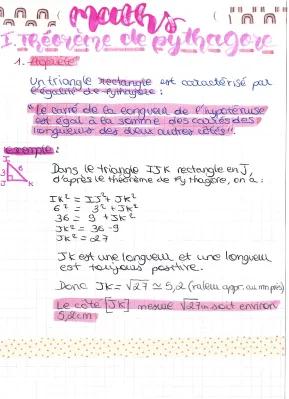 maths
I. Théorème de pythagore
1. Propriété
Un triangle rectangle est caractérisé par
l'égalité de Pythagore :
"Le carré de la longueur de l'hypoténuse
est égal à la somme des carrés des
longueurs des deux autres côtés".
exemple :
I
3
6
J
K
Dans le triangle IJK rectangle en J,
d'après le théorème de Pythagore, on a :
IK² = IJ² + JK²
6² = 3² + JK²
36 = 9 + JK²
JK² = 36 - 9
JK² = 27
JK est une longueur et une longueur
est toujours positive.
Donc JK = √27 ≃ 5,2 (valeur appr. au mm près)
Le côté [JK] mesure √27cm soit environ
5,2cm